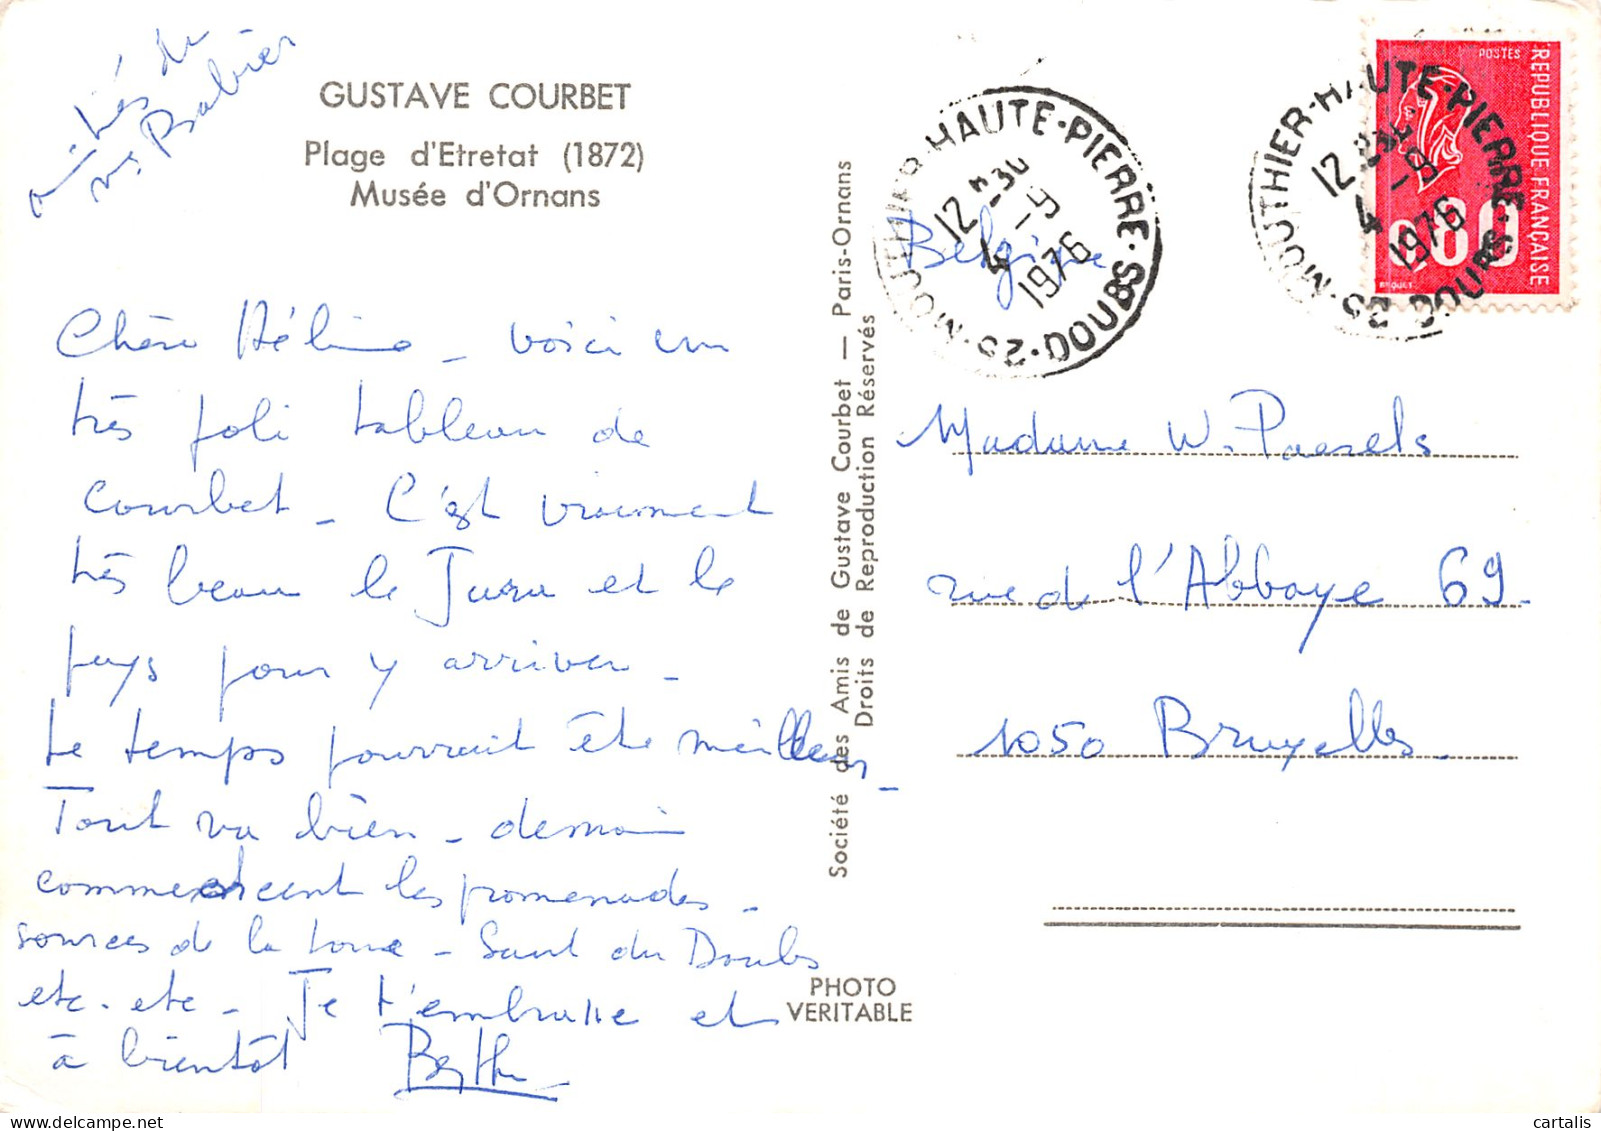 amitiés de
Mr Barbier
GUSTAVE COURBET
Plage d'Etretat (1872)
Musée d'Ornans
Chère Hélène _ voici un
très joli tableau de
Courbet _ C'est vraiment
très beau le Jura et le
pays pour y arriver _
Le temps pourrait être meilleur _
Tout va bien _ demain
commencent les promenades _
sources de la Loue _ Saut du Doubs
etc. etc _ Je t'embrasse et
à bientôt Berthe
Société des Amis de Gustave Courbet — Paris-Ornans
Droits de Reproduction Réservés
PHOTO
VERITABLE
25·MOUTHIER·HAUTE·PIERRE·DOUBS
12
4 -9
1976
Belgique
25·MOUTHIER·HAUTE·PIERRE·DOUBS
12
4 -9
1976
POSTES
REPUBLIQUE FRANÇAISE
0,80
BEQUET
Madame W. Paesels
rue de l'Abbaye 69 _
1050 Bruxelles.
cartalis